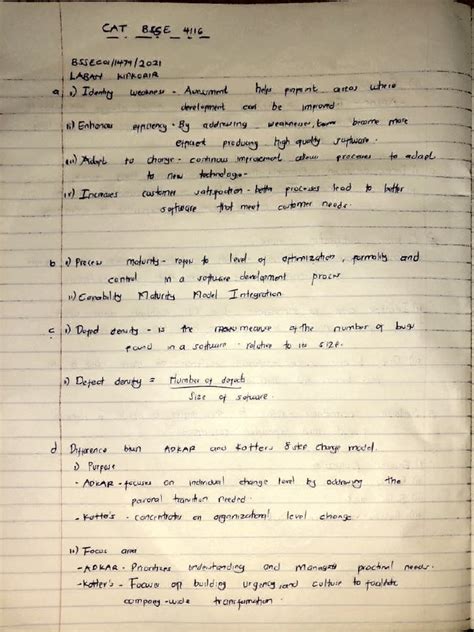 CAT BSSE 4116
BSSEC01/1479/2021
LABAN KIPKORIR
a i) Identify weakness - Assessment help pinpoint areas where
development can be improved
ii) Enhances efficiency - By addressing weaknesses, become more
efficient producing high quality software.
iii) Adapt to change - continous improvement allows processes to adapt
to new technologies.
iv) Increases customer satisfaction - better processes lead to better
software that meet customer needs.
b i) Process maturity - refers to level of optimization, formality and
control in a software development process
ii) Capability Maturity Model Integration
c i) Defect density - is the measure of the number of bugs
found in a software relative to its size.
ii) Defect density = Number of defects
Size of software.
d Difference btwn ADKAR and Kotters 8 step change model.
i) Purpose
- ADKAR - focuses on individual change level by addressing the
personal transition needed.
- Kotter's - concentrates on organizational level change
ii) Focus area
- ADKAR - Prioritizes understanding and managing practical needs.
- Kotter's - Focuses on building urgency and culture to facilitate
company-wide transformation.